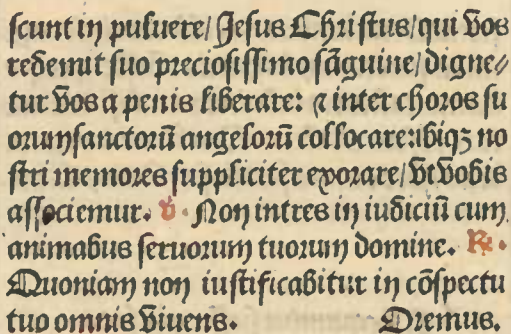 ſcunt in puluere/ Jeſus Chriſtus/ qui vos
redemit ſuo precioſiſſimo ſãguine/ digne⸗
tur vos a penis liberare: ⁊ inter choros ſu
orum ſanctorũ angelorũ collocare: ibiqꝫ no
ſtri memores ſuppliciter exorare/ vt vobis
aſſociemur. v. Non intres in iudiciũ cum
animabus ſeruorum tuorum domine. ℟.
Quoniam non iuſtificabitur in cõſpectu
tuo omnis viuens. Oremus.